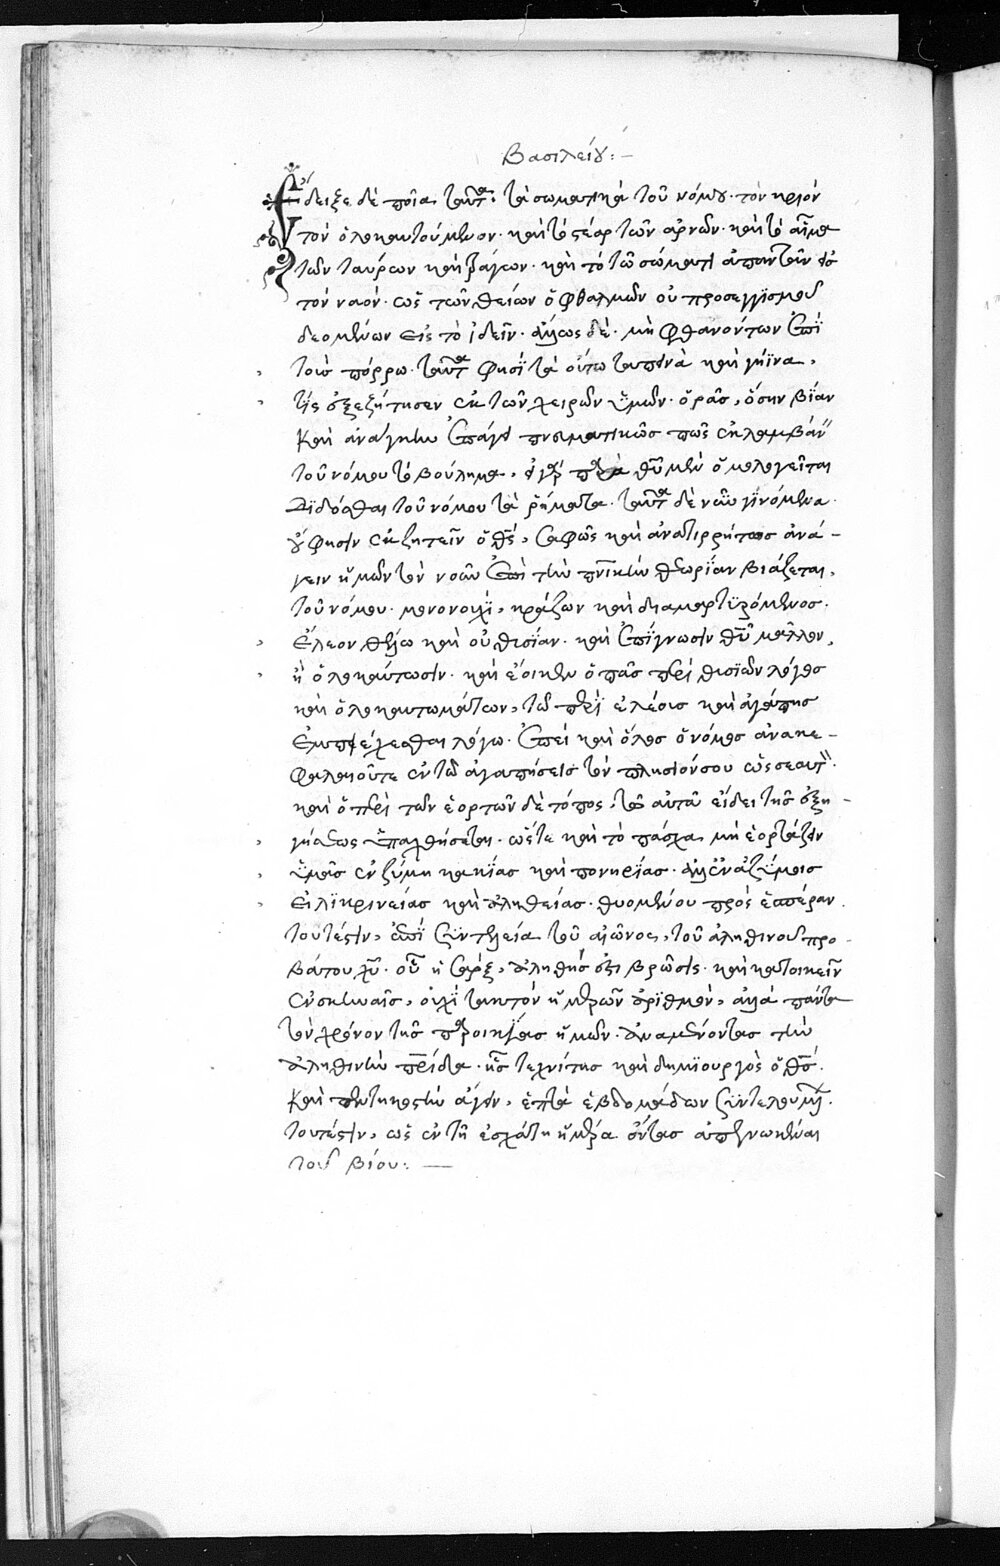 Βασιλείου:–
Ἔδειξε δὲ ποῖα ταῦτα· τὰ σωματικὰ τοῦ νόμου· τὸν κριὸν
τὸν ὁλοκαυτούμενον· καὶ τὸ στέαρ τῶν ἀρνῶν· καὶ τὸ αἷμα
τῶν ταύρων καὶ τράγων· καὶ τὸ τῷ σώματι ἀπαντᾶν εἰς
τὸν ναόν· ὡς τῶν θείων ὀφθαλμῶν οὐ προσεγγϊσμοῦ
δεομένων εἰς τὸ ἰδεῖν· ἄλλως δὲ· μὴ φθανόντων ἐπῒ
τοὺς πόρρω· ταῦτα φησῒ τὰ οὕτω ταπεινὰ καὶ γήϊνα,
τίς ἐξεζήτησεν ἐκ τῶν χειρῶν ὑμῶν· ὁρᾶς, ὅσην βΐαν
καὶ ἀνάγκην ἐπάγει πνευματικῶς πῶς ἐκλαμβάν
τοῦ νόμου τὸ βούλημα, εἰ γὰρ παρὰ θῦ μὲν ὁμολογεῖται
δϊδόσθαι τοῦ νόμου τὰ ῥήματα· ταῦτα δὲ νῦν γϊνόμενα
οὔ φησιν ἐκζητεῖν ὁ θς, σαφῶς καὶ ἀναντιρρήτως ἀνά-
γειν ἡμῶν τὸν νοῦν ἐπὶ τὴν πνικὴν θεωρίαν βιάζεται,
τοῦ νόμου· μονονουχῒ, κράζων καὶ διαμαρτϋρόμενος·
ἔλεον θέλω καὶ οὐ θυσΐαν· καὶ ἐπίγνωσιν θῦ μᾶλλον,
ἢ ὁλοκαύτωσιν· καὶ ἔοικεν ὁ πᾶς περὶ θυσϊῶν λόγος
καὶ ὁλοκαυτωμάτων, τῷ περῒ ἐλέους καὶ ἀγάπης
ἐμπεριέχεσθαι λόγω· ἐπεὶ καὶ ὅλος ὁ νόμος ἀνακε-
φαλαιοῦται ἐν τῶ ἀγαπήσεις τὸν πλησίον σου ὡς σεαυτ·
καὶ ὁ περὶ τῶν ἑορτῶν δὲ τόπος, τῶ αὐτῶ εἴδει τῆς ἐξη-
γήσεως ἐπαχθήσεται· ὥστε καὶ τὸ πάσχα, μὴ ἑορτάζειν
ὑμᾶς ἐν ζύμη κακΐας καὶ πονηρΐας· ἀλλ' ἐν ἀζύμοις
εἰλϊκρινείας καὶ ἀληθείας· θυομένου πρὸς ἑσπέραν
τουτέστιν, ἐπῒ συντελεία τοῦ αἰῶνος, τοῦ ἀληθινοῦ προ-
βάτου χῦ· οὗ ἡ σάρξ, ἀληθής ἐστι βρῶσις· καὶ κατοικεῖν
ἐν σκηναῖς, οὐχῒ τακτὸν ἡμερῶν ἀρϊθμὸν, ἀλλὰ πάντα
τὸν χρόνον τῆς παροικΐας ἡμῶν· ἀναμένοντας τὴν
ἀληθινὴν πρίδα· ἧς τεχνίτης καὶ δημϊουργὸς ὁ θς·
καὶ πεντηκοστὴν ἄγειν, ἑπτὰ ἑβδομάδων συντελουμ·
τουτέστιν, ὡς ἐν τῆ ἐσχάτη ἡμέρα ὄντας ἀπεγνωκέναι
τοῦ βίου:—